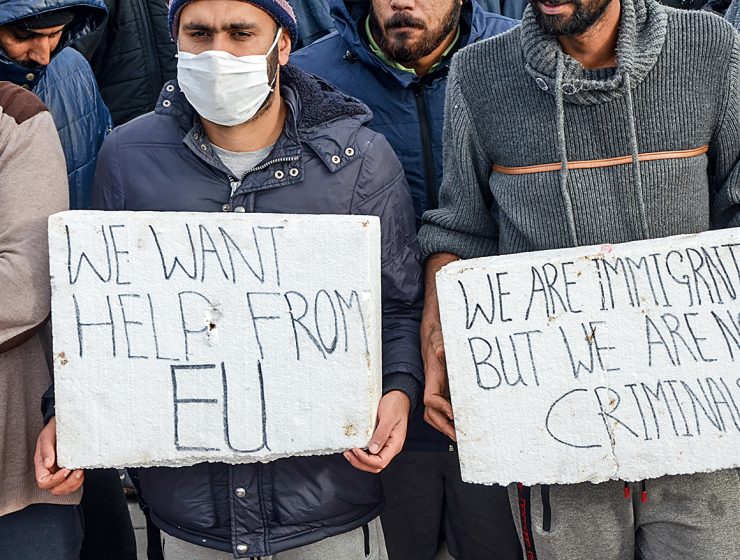 WE WANT
HELP FROM
EU
WE ARE IMMIGRANT
BUT WE ARE
CRIMINALS